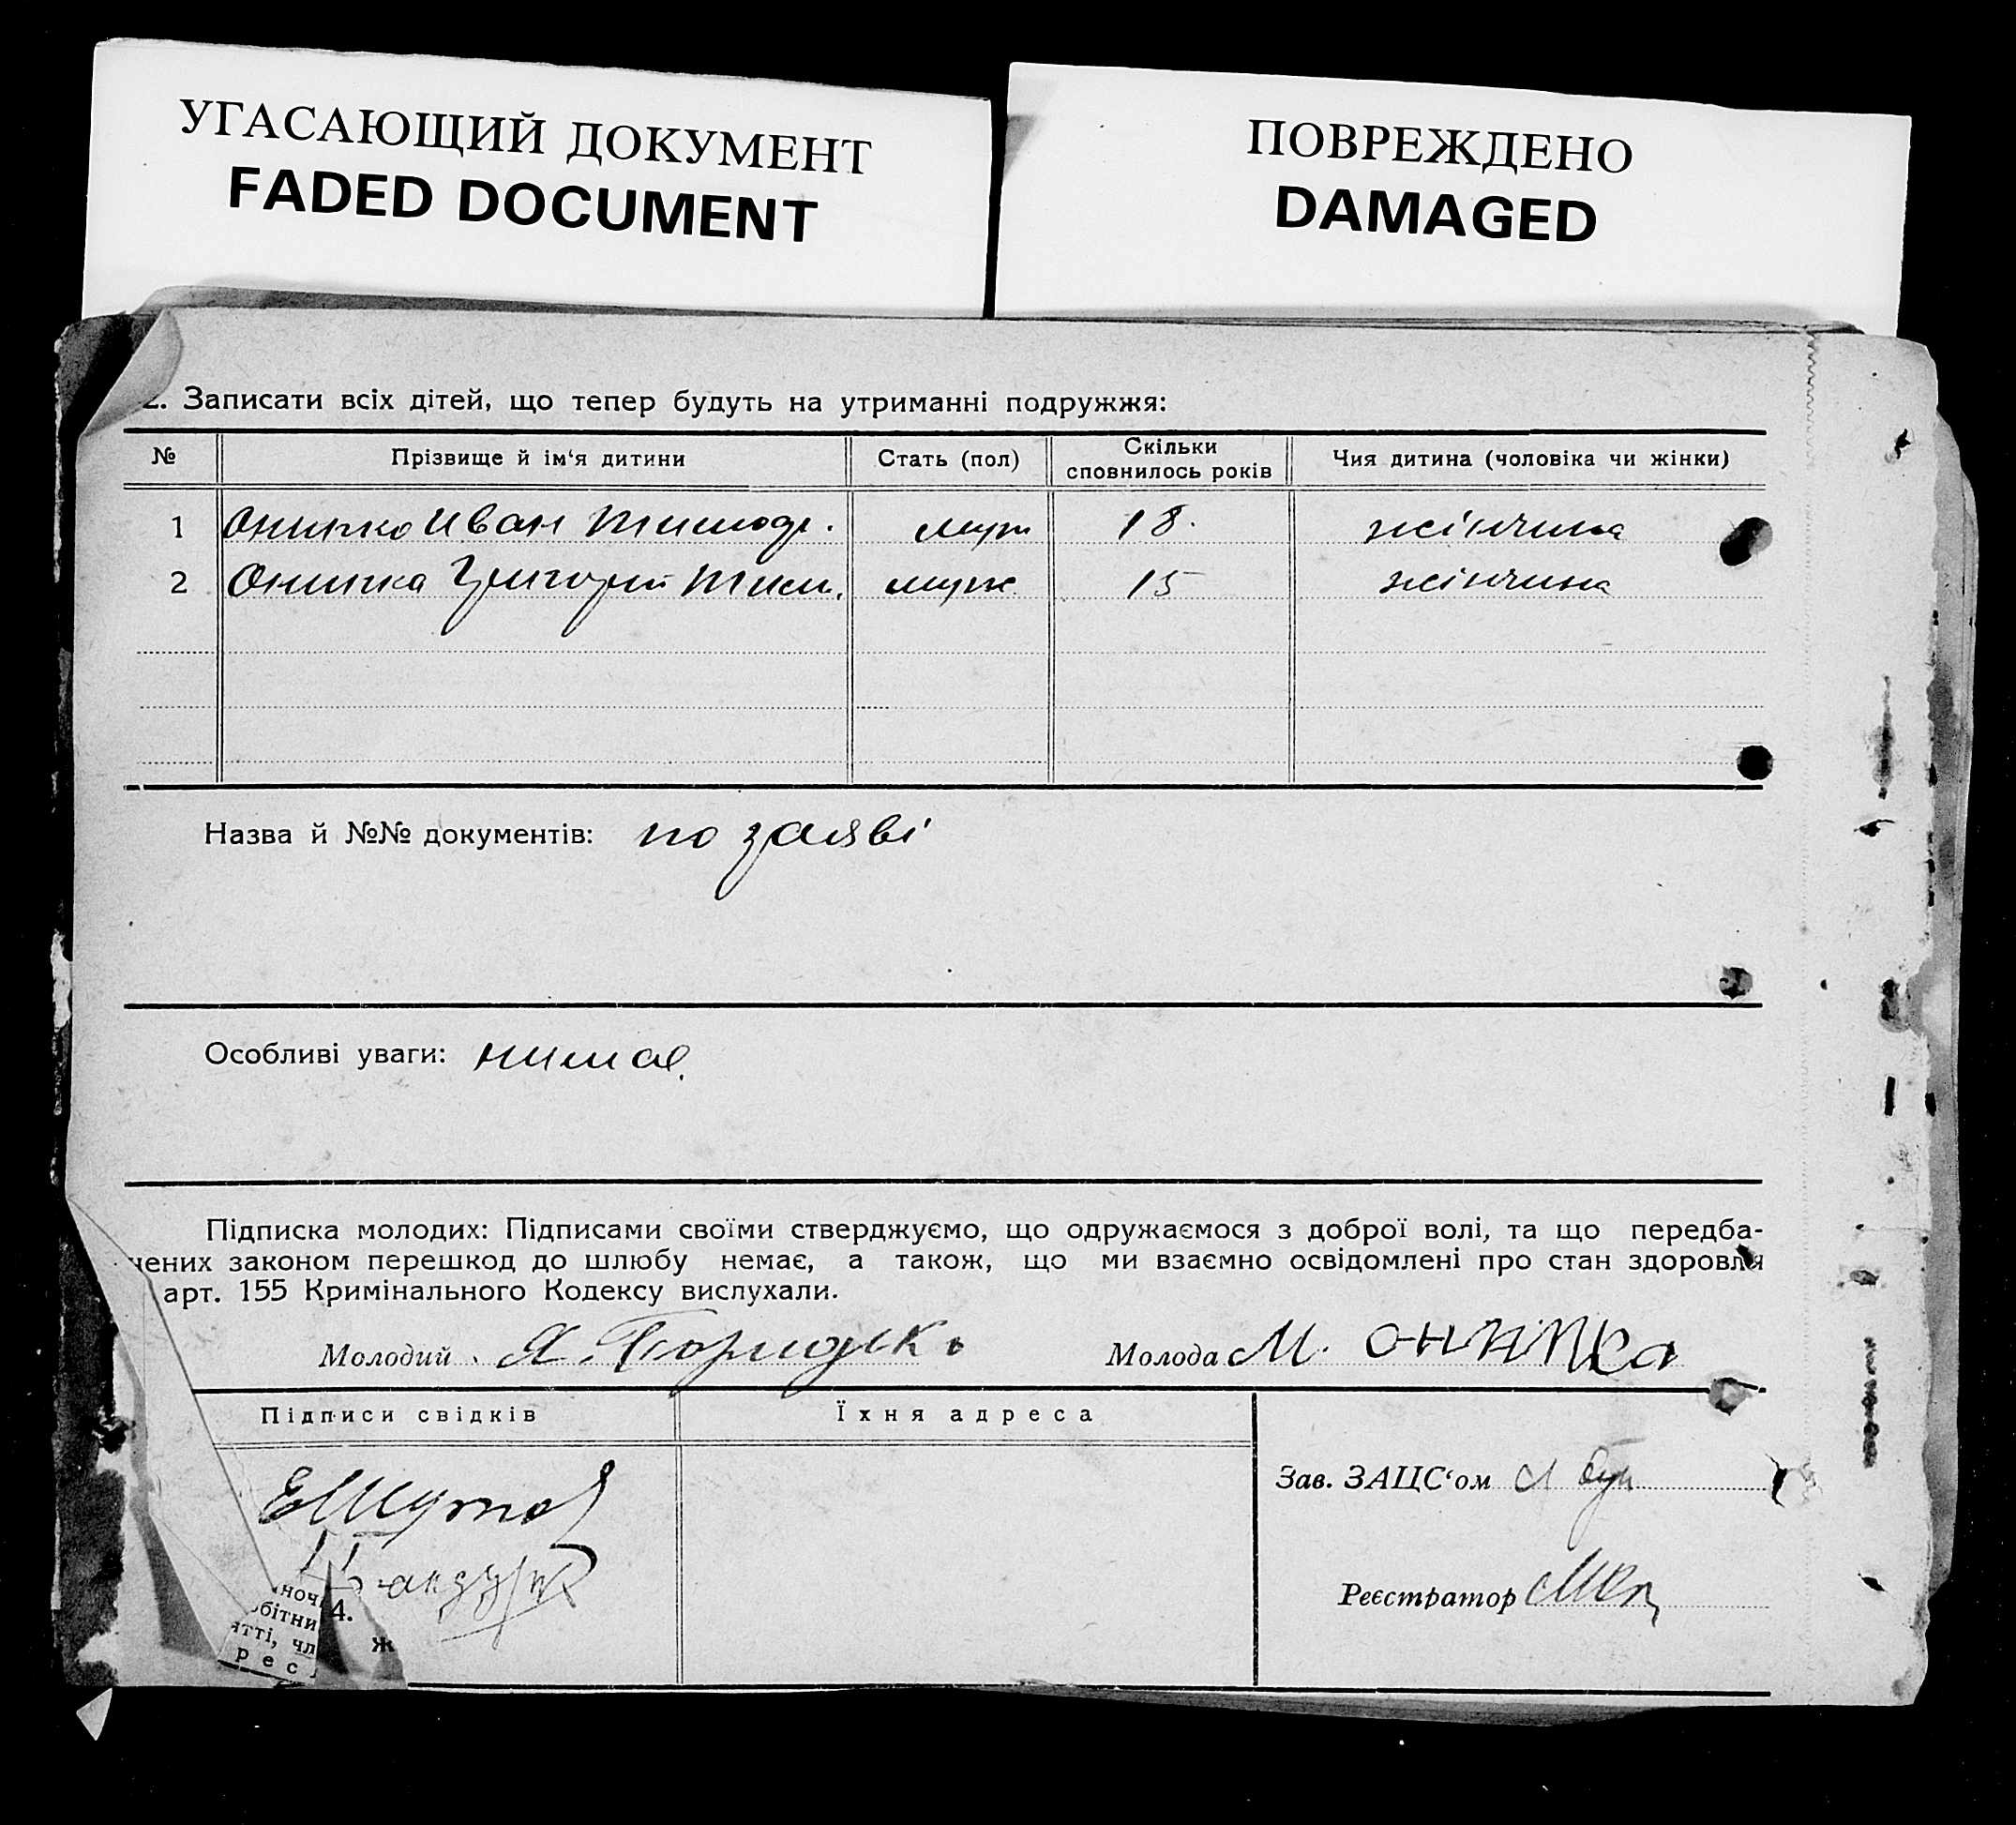 УГАСАЮЩИЙ ДОКУМЕНТ
FADED DOCUMENT
ПОВРЕЖДЕНО
DAMAGED
2. Записати всіх дітей, що тепер будуть на утриманні подружжя:
№ Прізвище й ім‘я дитини Стать (пол) Скільки сповнилось років Чия дитина (чоловіка чи жінки)
1 Онипко Иван Тимоф. муж 18. жінчина
2 Онипка Григорій Тим. муж 15 жінчина
Назва й №№ документів: по заяві
Особливі уваги: нимає.
Підписка молодих: Підписами своїми стверджуємо, що одружаємося з доброї волі, та що передба-
чених законом перешкод до шлюбу немає, а також, що ми взаємно освідомлені про стан здоровля
арт. 155 Кримінального Кодексу вислухали.
Молодий Я. Молода М. Онипка
Підписи свідків Їхня адреса
Зав. ЗАЦС‘ом
Реєстратор
ночі
бітни
атті, чл
рес
4.
Ж